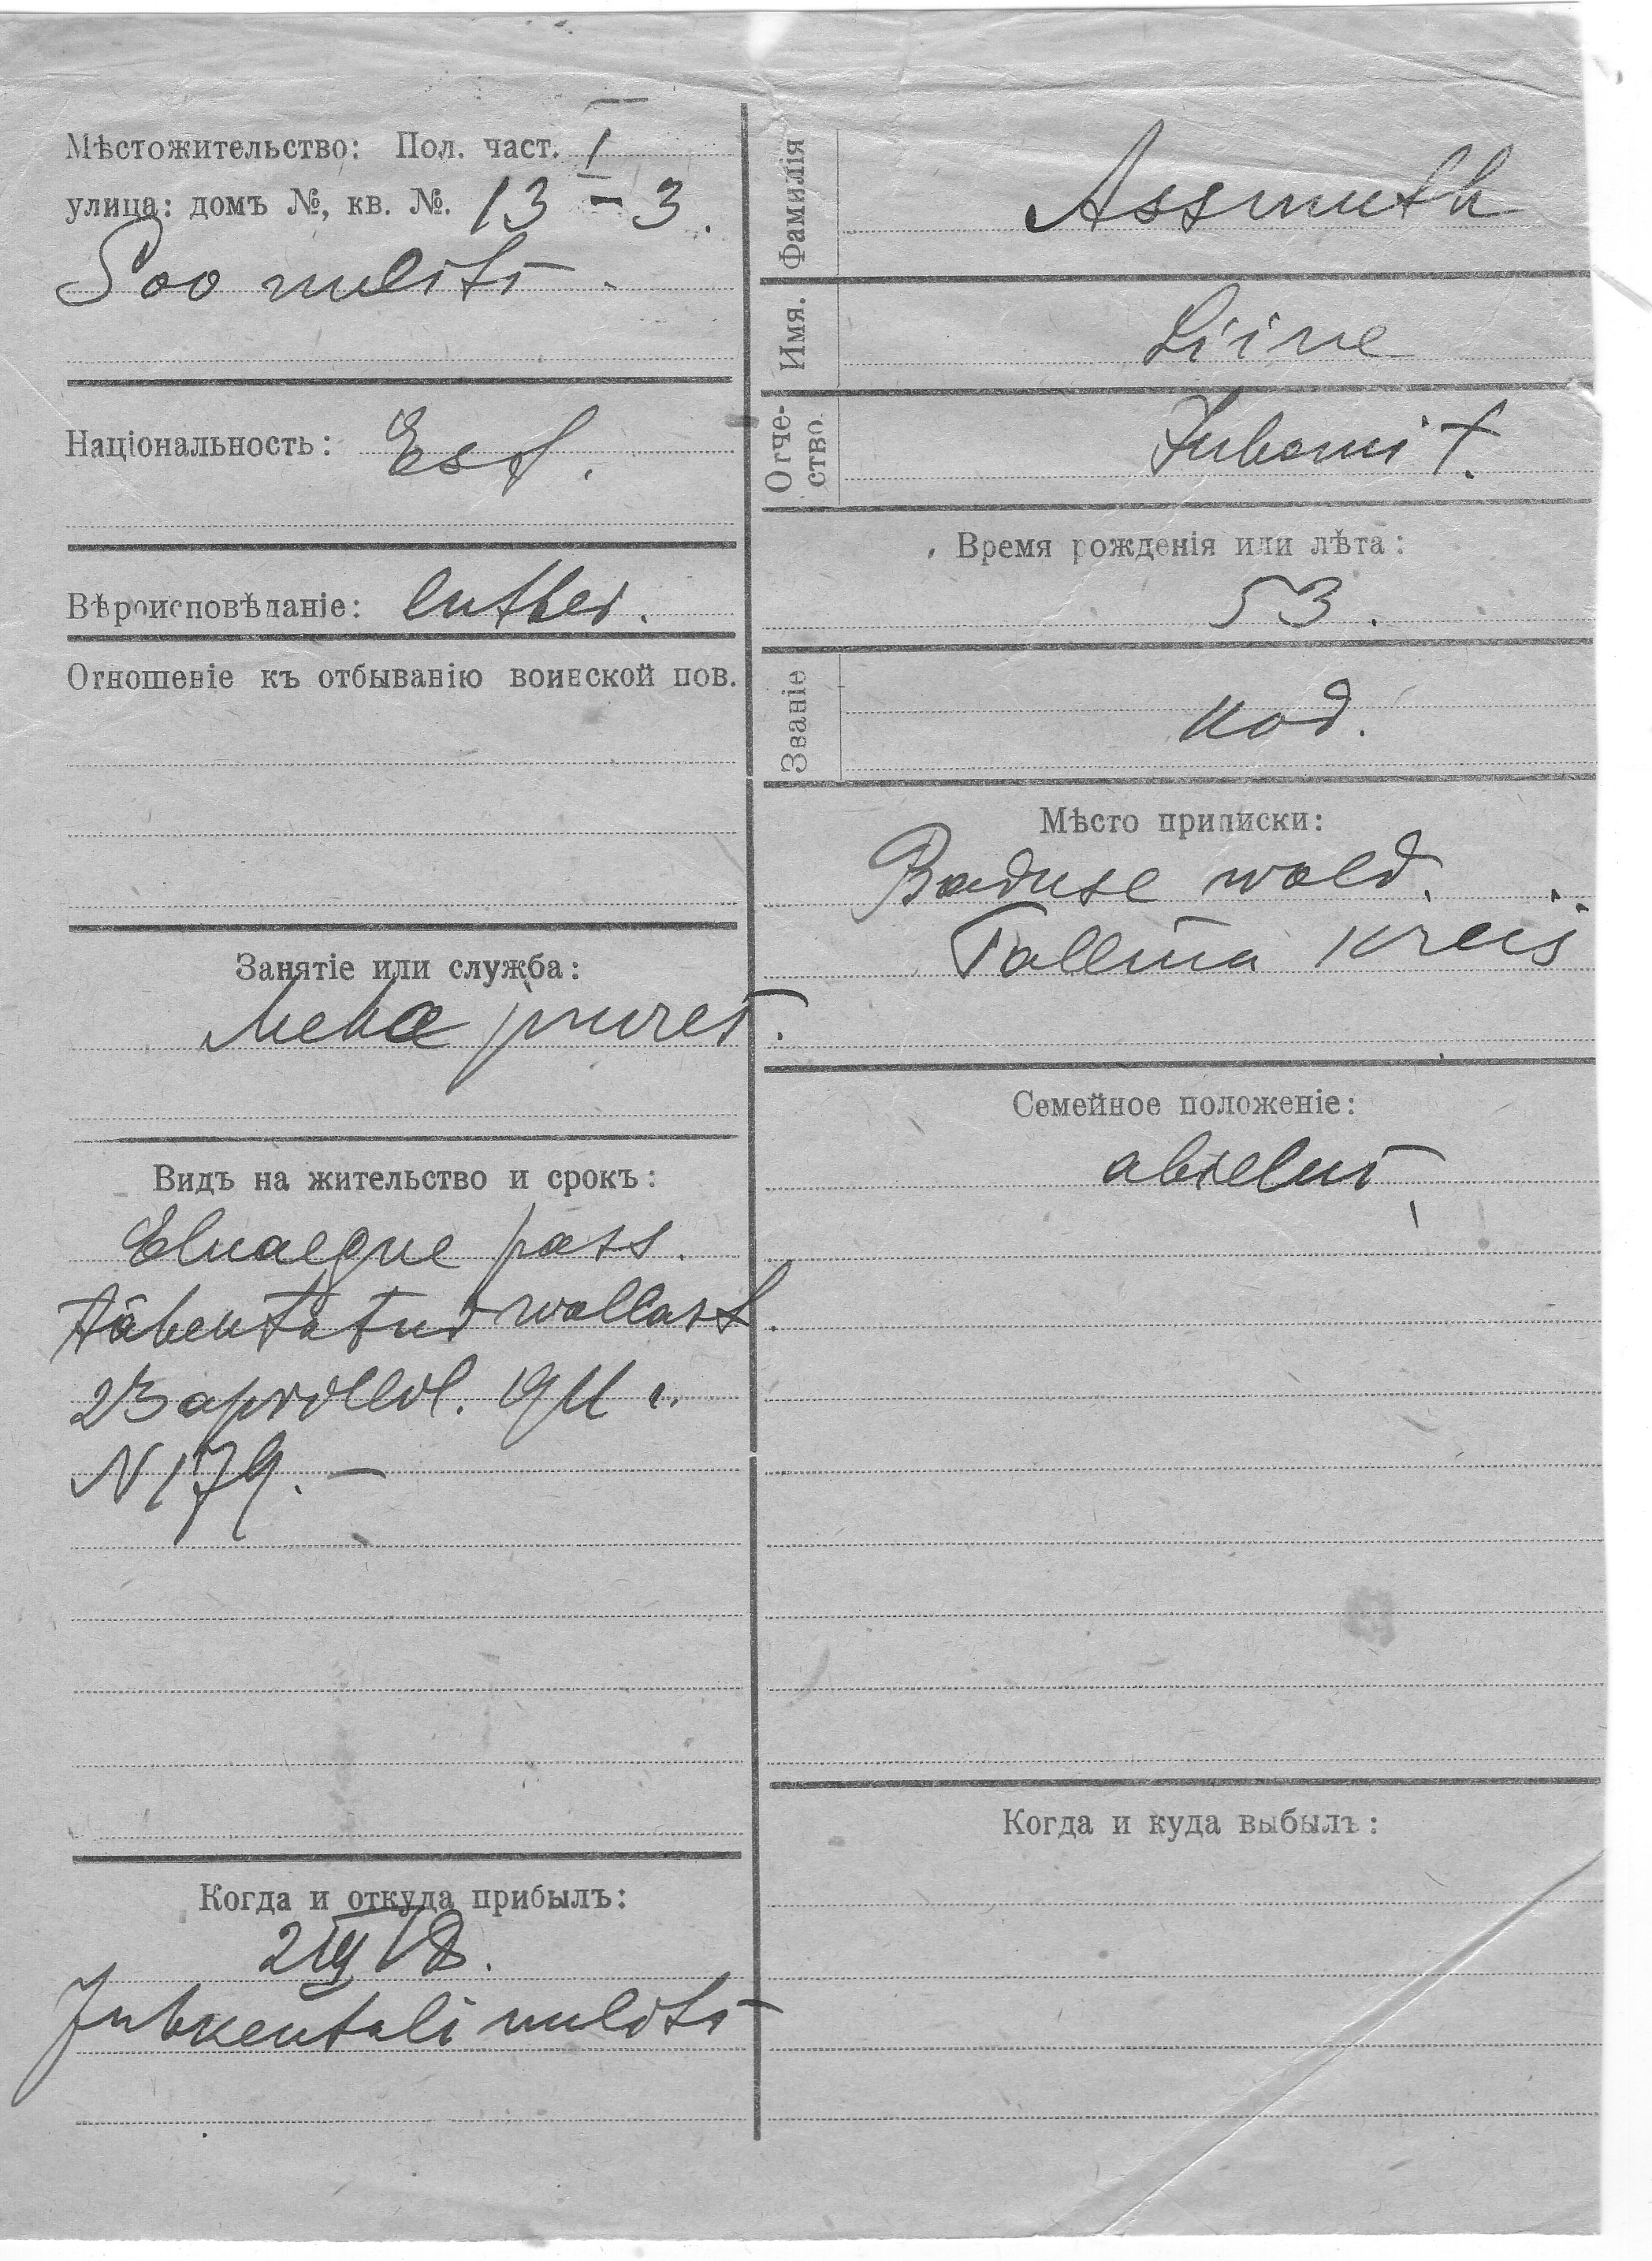 Мѣстожительство: Пол. част. I
улица: домъ №, кв. №. 13 – 3.
Soo uulits
Національность: Est.
Вѣроисповѣданіе: luther.
Отношеніе къ отбыванію воинской пов.
Занятіе или служба:
Meha juures.
Видъ на жительство и срокъ:
Eluaegne pass.
wallast.
23 aprillil. 1911
N 179. –
Когда и откуда прибылъ:
Juhkentali uulits
Фамилія Assmuth
Имя. Liine
Отчество. Juhani t.
Время рожденія или лѣта:
53.
Званіе kod.
Мѣсто приписки:
wald.
Tallina kreis
Семейное положеніе:
abielus
Когда и куда выбылъ: